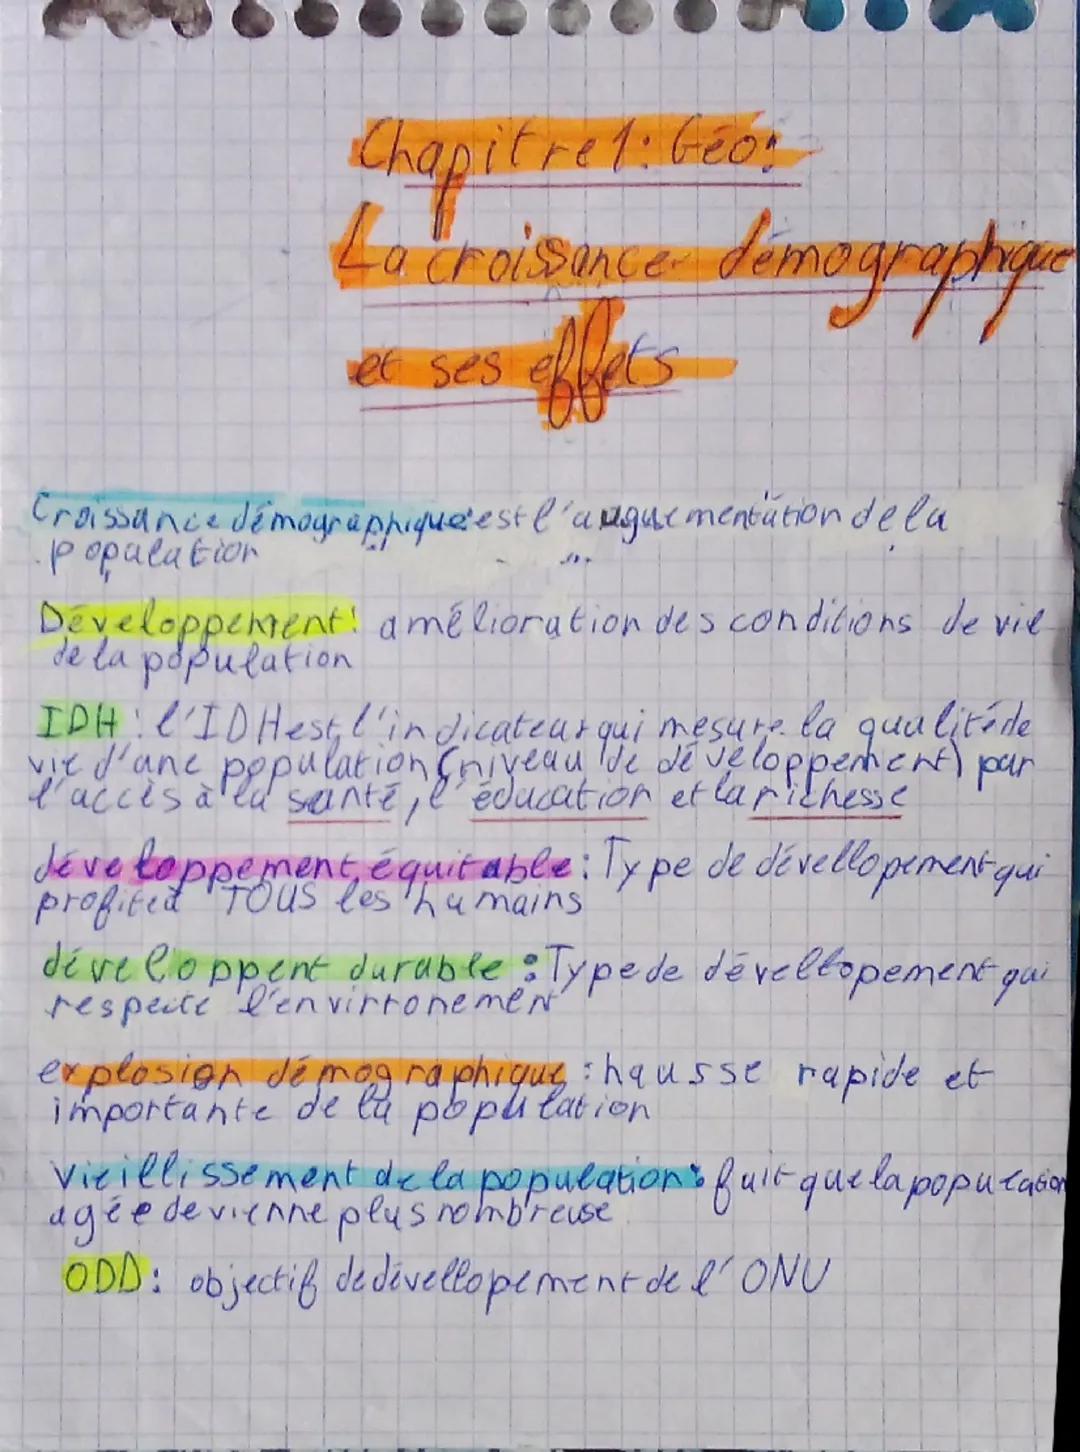 Chapitre 1: Géo:
La croissance démographique
et ses effets
Croissance démographique: est l'auguementation de la
population
Développement: amélioration des conditions de vie
de la population
IDH : l'IDH est l'indicateur qui mesure la qualité de
vie d'une population (niveau de développement) par
l'accès à la santé, l'éducation et la richesse
développement équitable : Type de dévellopement qui
profite à TOUS les humains
développent durable : Type de dévellopement qui
respecte l'envirronement
explosion démographique : hausse rapide et
importante de la population
Vieillissement de la population : fait que la population
agée devienne plus nombreuse
ODD : objectif de dévellopement de l'ONU